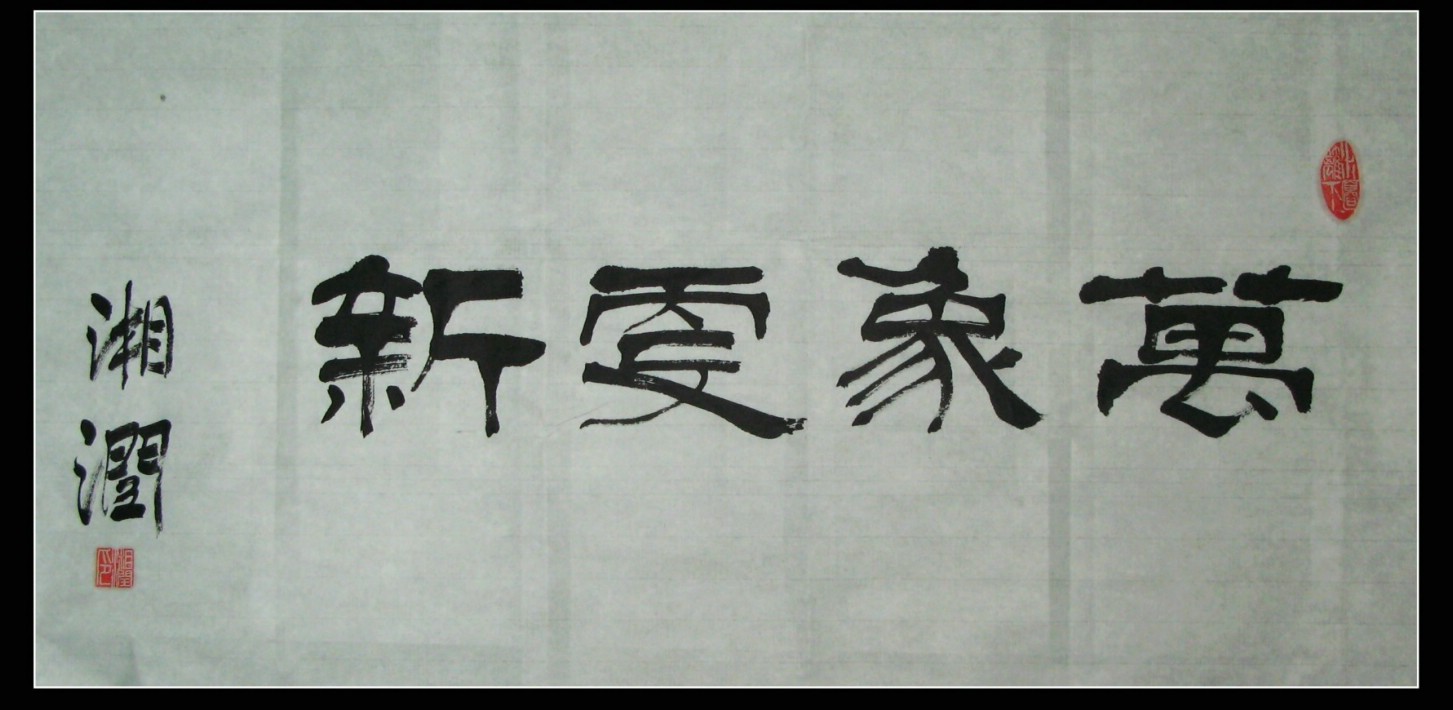 萬象更新
湘潤